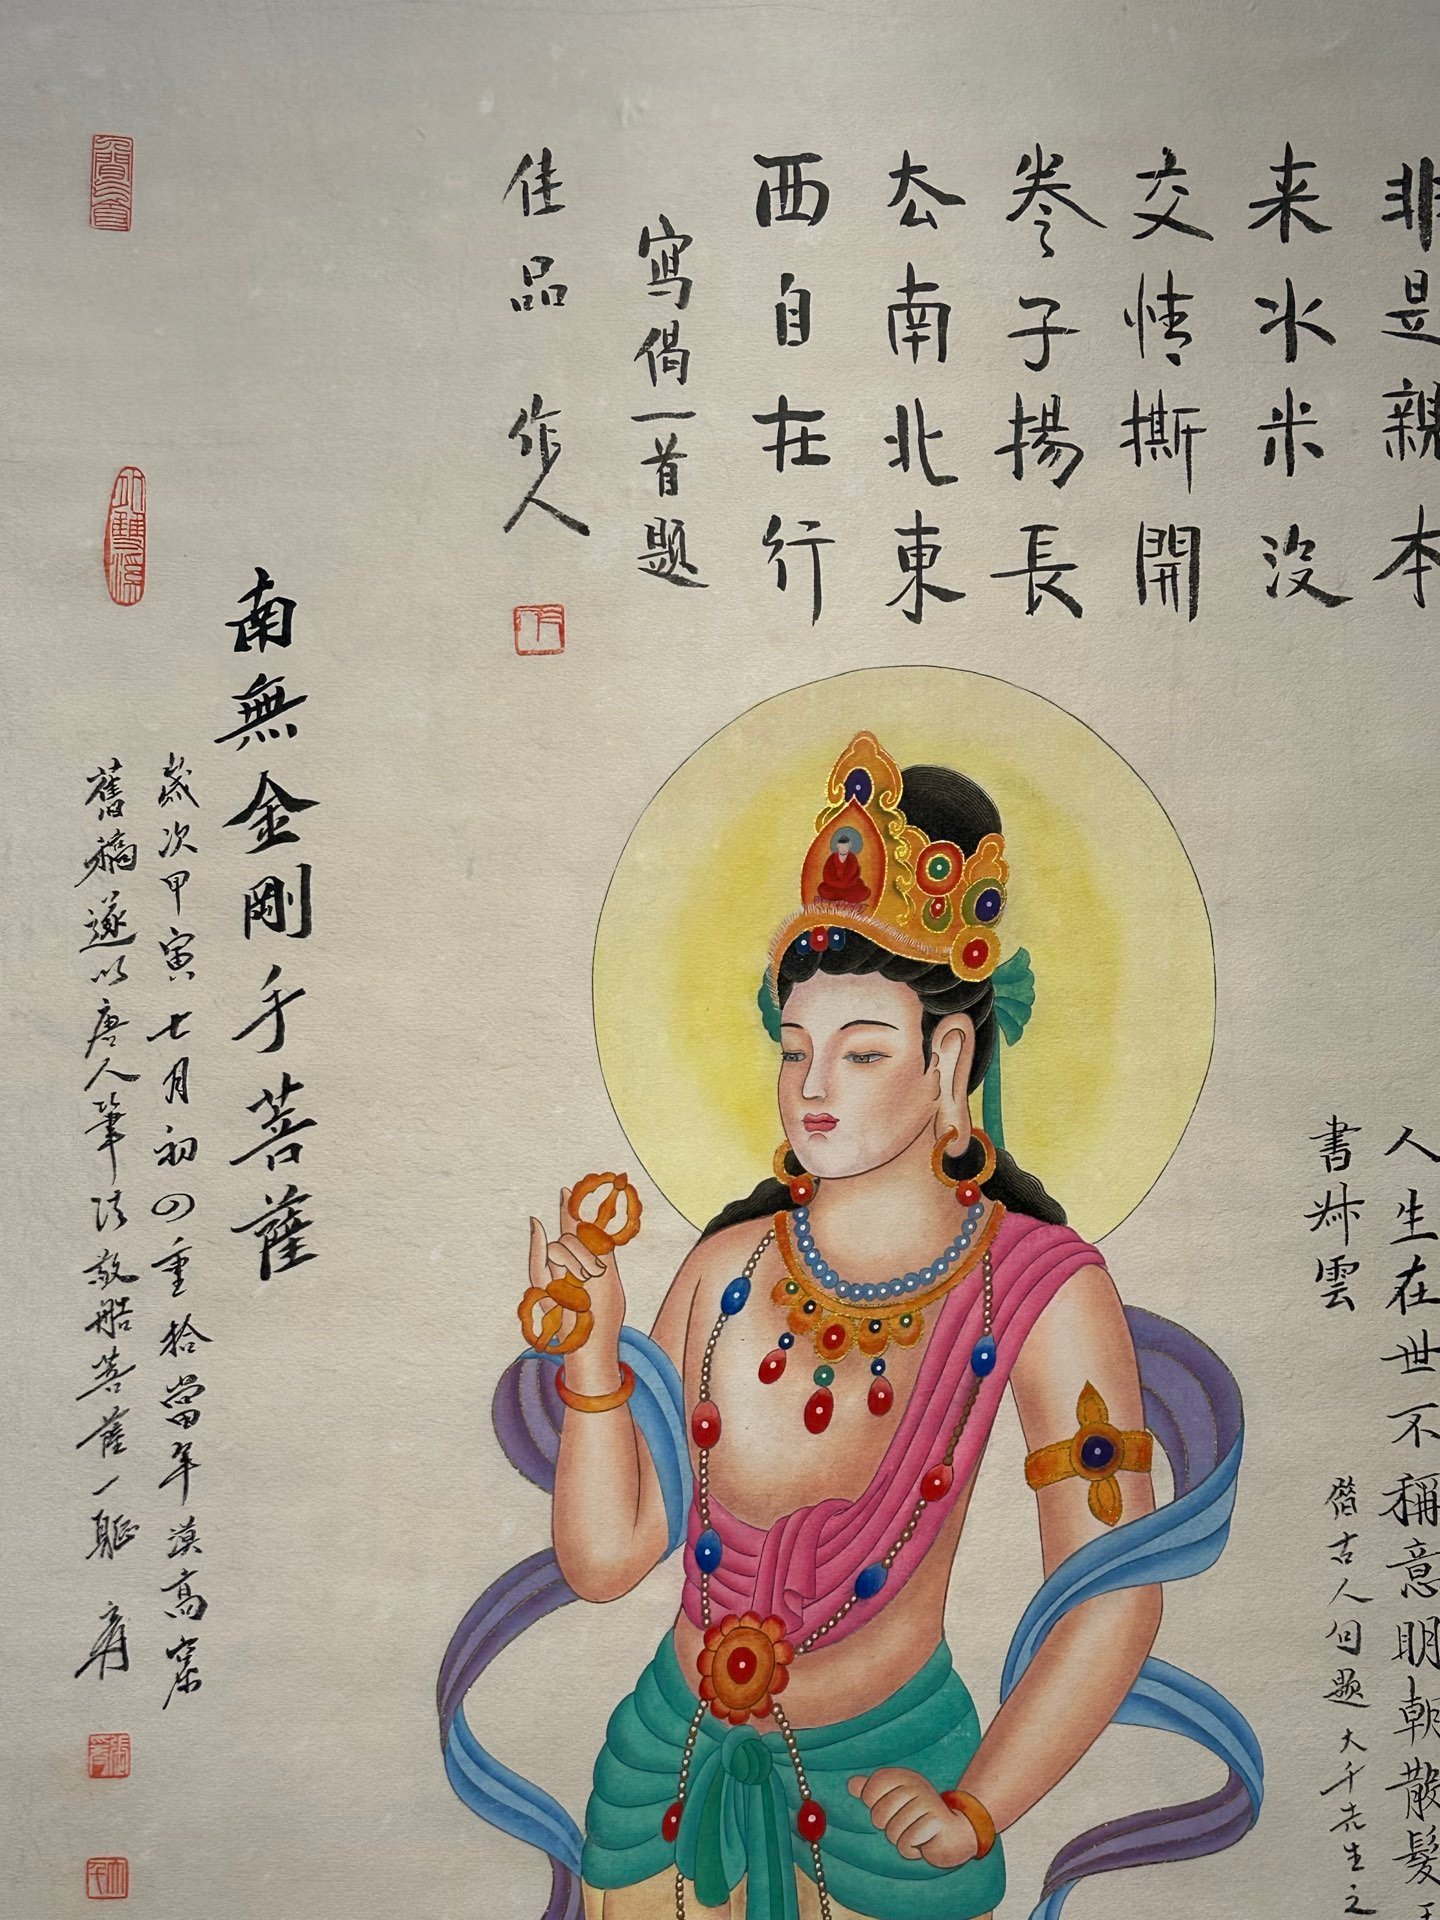 非是親本
来水米没
交情撕開
卷子揚長
去南北東
西自在行
寫偈一首題
佳品 作人
人生在世不稱意明朝散髮
書妳雲
借古人句題大千先生之
南無金剛手菩薩
歲次甲寅七月初四重拾當年漠高窟
舊稿遂以唐人筆法敬船菩薩一軀 爰